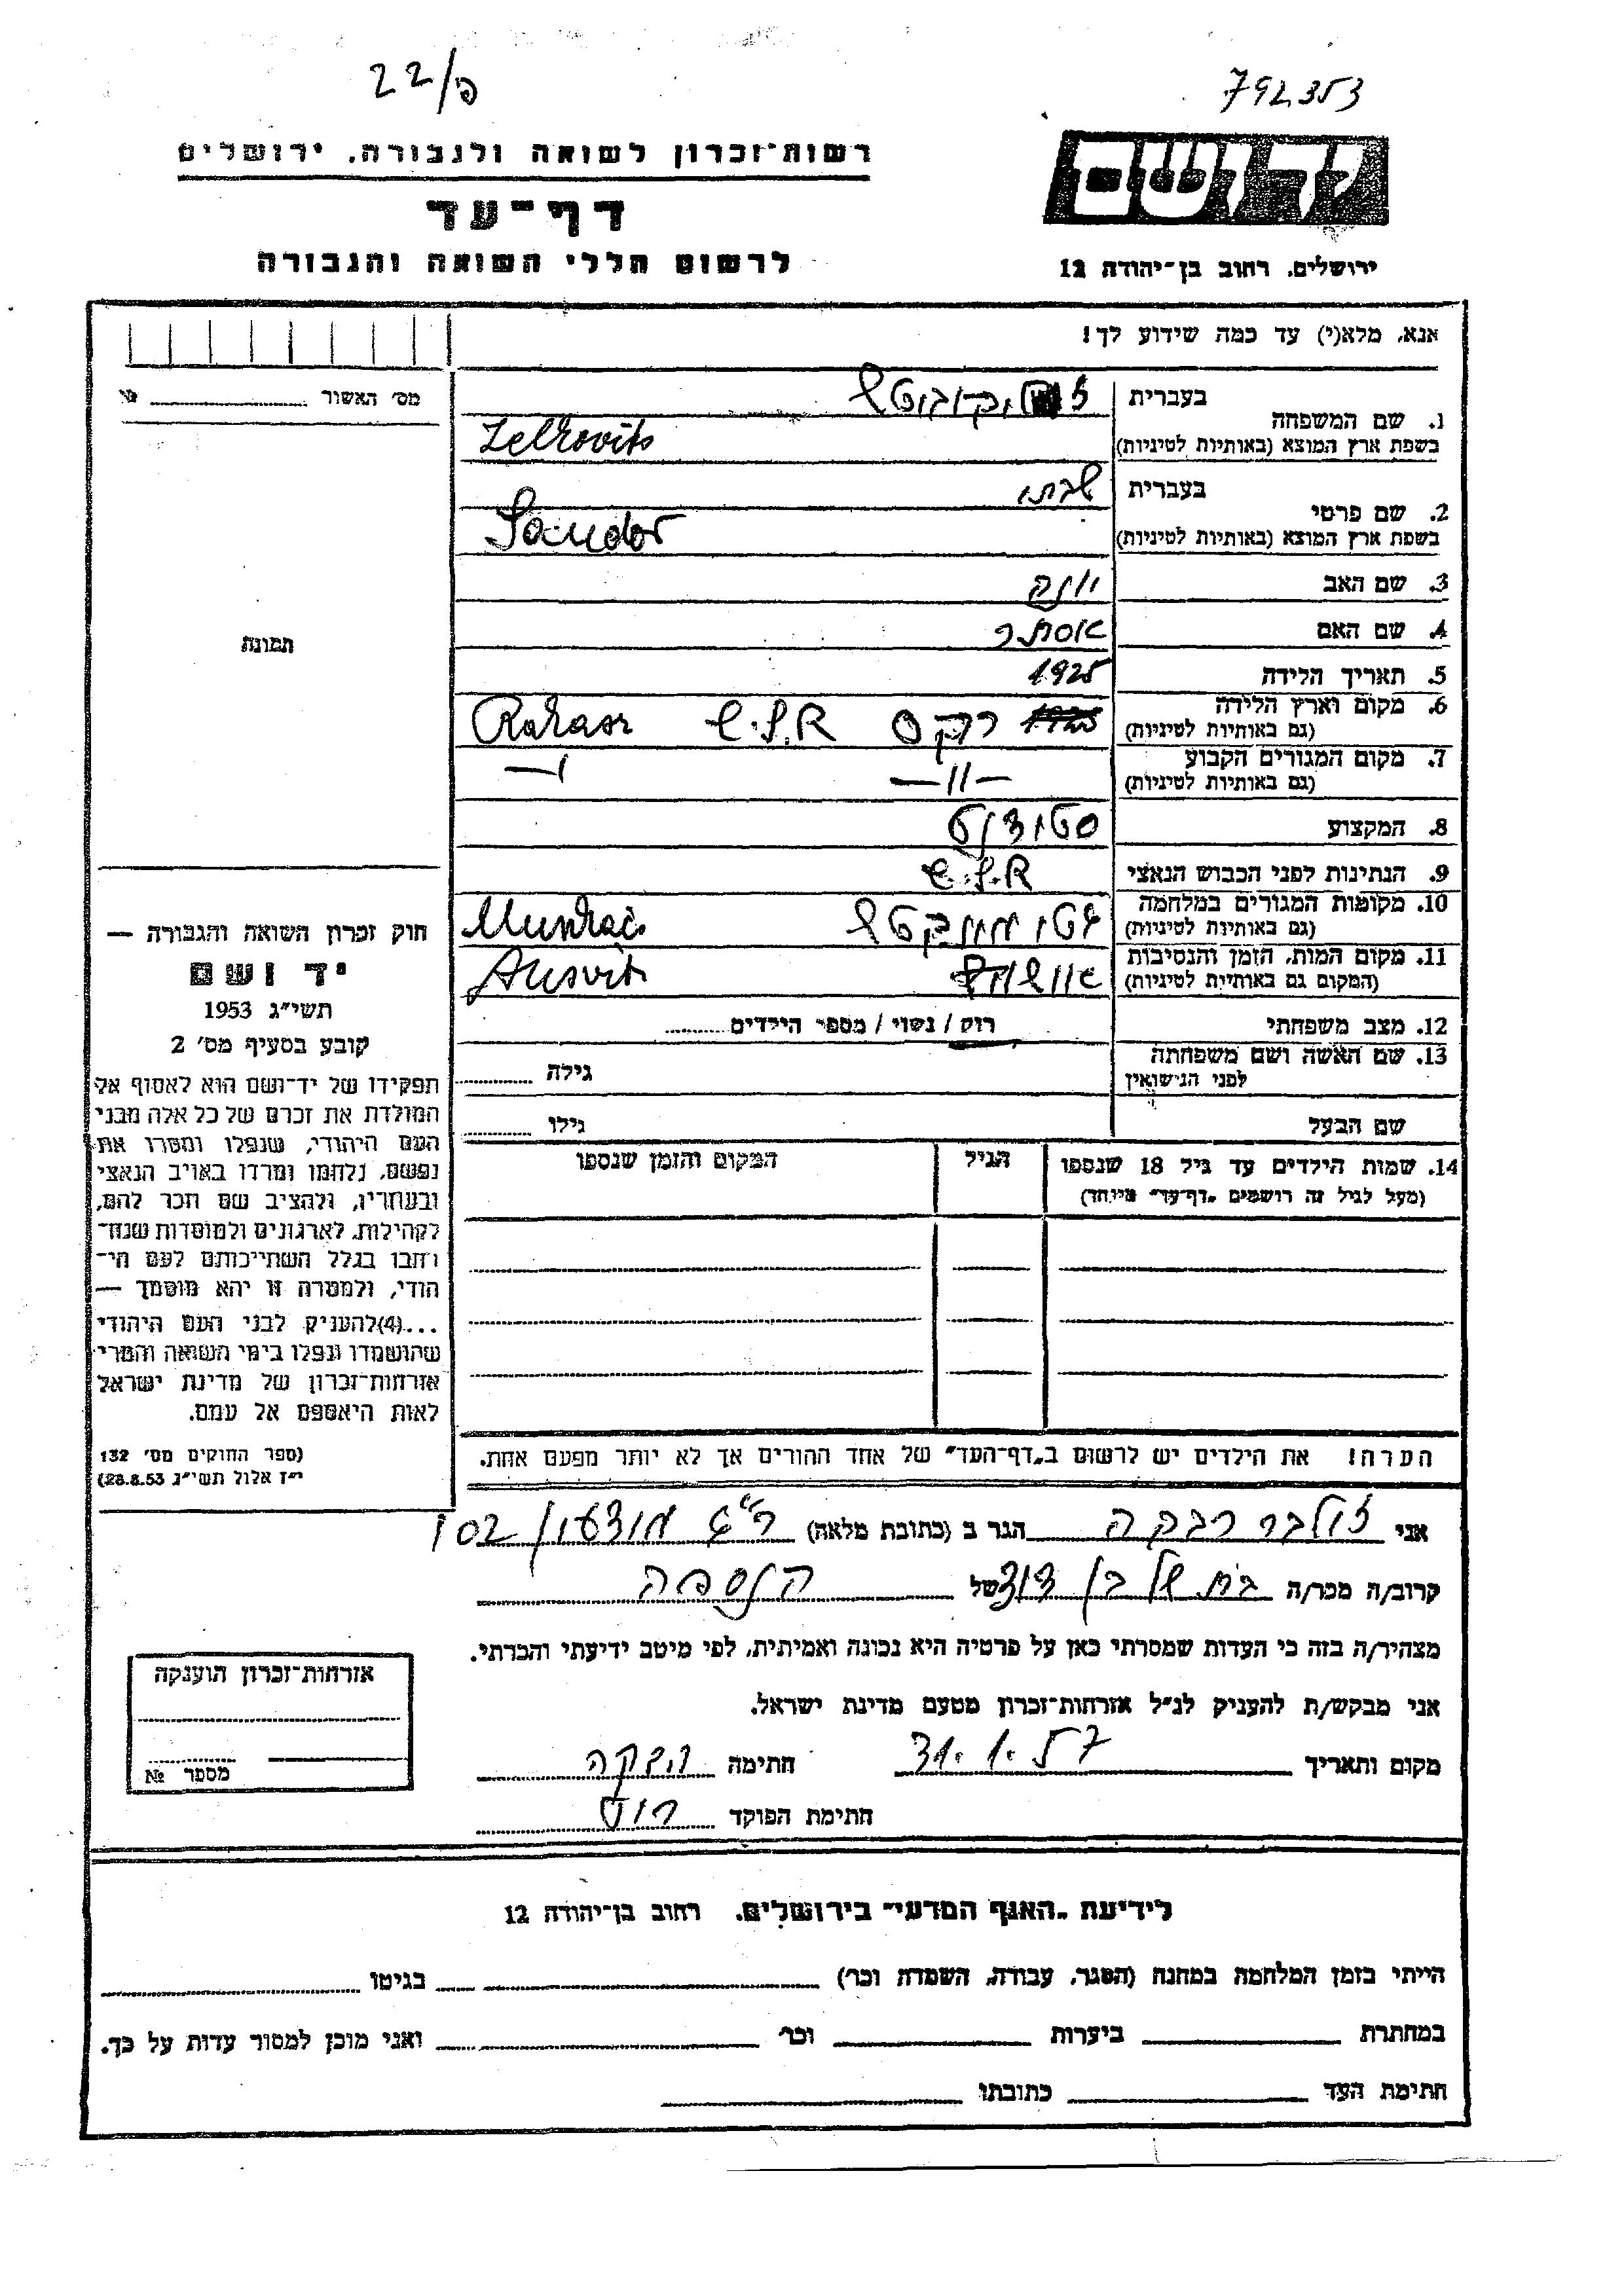 22/פ
792353
רשות-זכרון לשואה ולגבורה. ירושלים
דף-עד
לרשום חללי השואה והגבורה
יד ושם
ירושלים. רחוב בן-יהודה 12
אנא, מלא(י) עד כמה שידוע לך!
מס' האשור № 
1. שם המשפחה
בעברית
בשפת ארץ המוצא (באותיות לטיניות) Zelkovits
2. שם פרטי
בעברית שבתי
בשפת ארץ המוצא (באותיות לטיניות) Sandor
3. שם האב יונה
4. שם האם אסתר
5. תאריך הלידה 1925
6. מקום וארץ הלידה 1925 רקס Č.S.R Rakasz
(גם באותיות לטיניות)
7. מקום המגורים הקבוע —"—
(גם באותיות לטיניות)
8. המקצוע סטודנט
9. הנתינות לפני הכבוש הנאצי Č.S.R
10. מקומות המגורים במלחמה Munkač
(גם באותיות לטיניות)
11. מקום המות, הזמן והנסיבות Ausvits
(המקום גם באותיות לטיניות)
12. מצב משפחתי רווק / נשוי / מספר הילדים
13. שם האשה ושם משפחתה גילה
לפני הנישואין
שם הבעל גילו
14. שמות הילדים עד גיל 18 שנספו הגיל המקום והזמן שנספו
(מעל לגיל זה רושמים "דף-עד" מיוחד)
הערה! את הילדים יש לרשום ב"דף-העד" של אחד ההורים אך לא יותר מפעם אחת.
תמונה
חוק זכרון השואה והגבורה —
יד ושם
תשי"ג 1953
קובע בסעיף מס' 2
תפקידו של יד-ושם הוא לאסוף אל
המולדת את זכרם של כל אלה מבני
העם היהודי, שנפלו ומסרו את
נפשם, נלחמו ומרדו באויב הנאצי
ובעוזריו, ולהציב שם וזכר להם,
לקהילות, לארגונים ולמוסדות שנח-
רבו בגלל השתייכותם לעם הי-
הודי, ולמטרה זו יהא מוסמך —
...(4) להעניק לבני העם היהודי
שהושמדו ונפלו בימי השואה והמרי
אזרחות-זכרון של מדינת ישראל
לאות היאספם אל עמם.
(ספר החוקים מס' 132
י"ז אלול תשי"ג 28.8.53)
אני רבקה הגר ב (כתובת מלאה) ר"ג 102
קרוב/ה מכר/ה בת של בן דוד של הנספה
מצהיר/ה בזה כי העדות שמסרתי כאן על פרטיה היא נכונה ואמיתית, לפי מיטב ידיעתי והכרתי.
אני מבקש/ת להעניק לנ"ל אזרחות-זכרון מטעם מדינת ישראל.
מקום ותאריך 31.1.57 חתימה רבקה
חתימת הפוקד
אזרחות-זכרון הוענקה
מספר №
לידיעת "האגף המדעי" בירושלים. רחוב בן-יהודה 12
הייתי בזמן המלחמה במחנה (הסגר, עבודה, השמדה וכו') בגיטו
במחתרת ביערות וכו' ואני מוכן למסור עדות על כך.
חתימת העד כתובתו